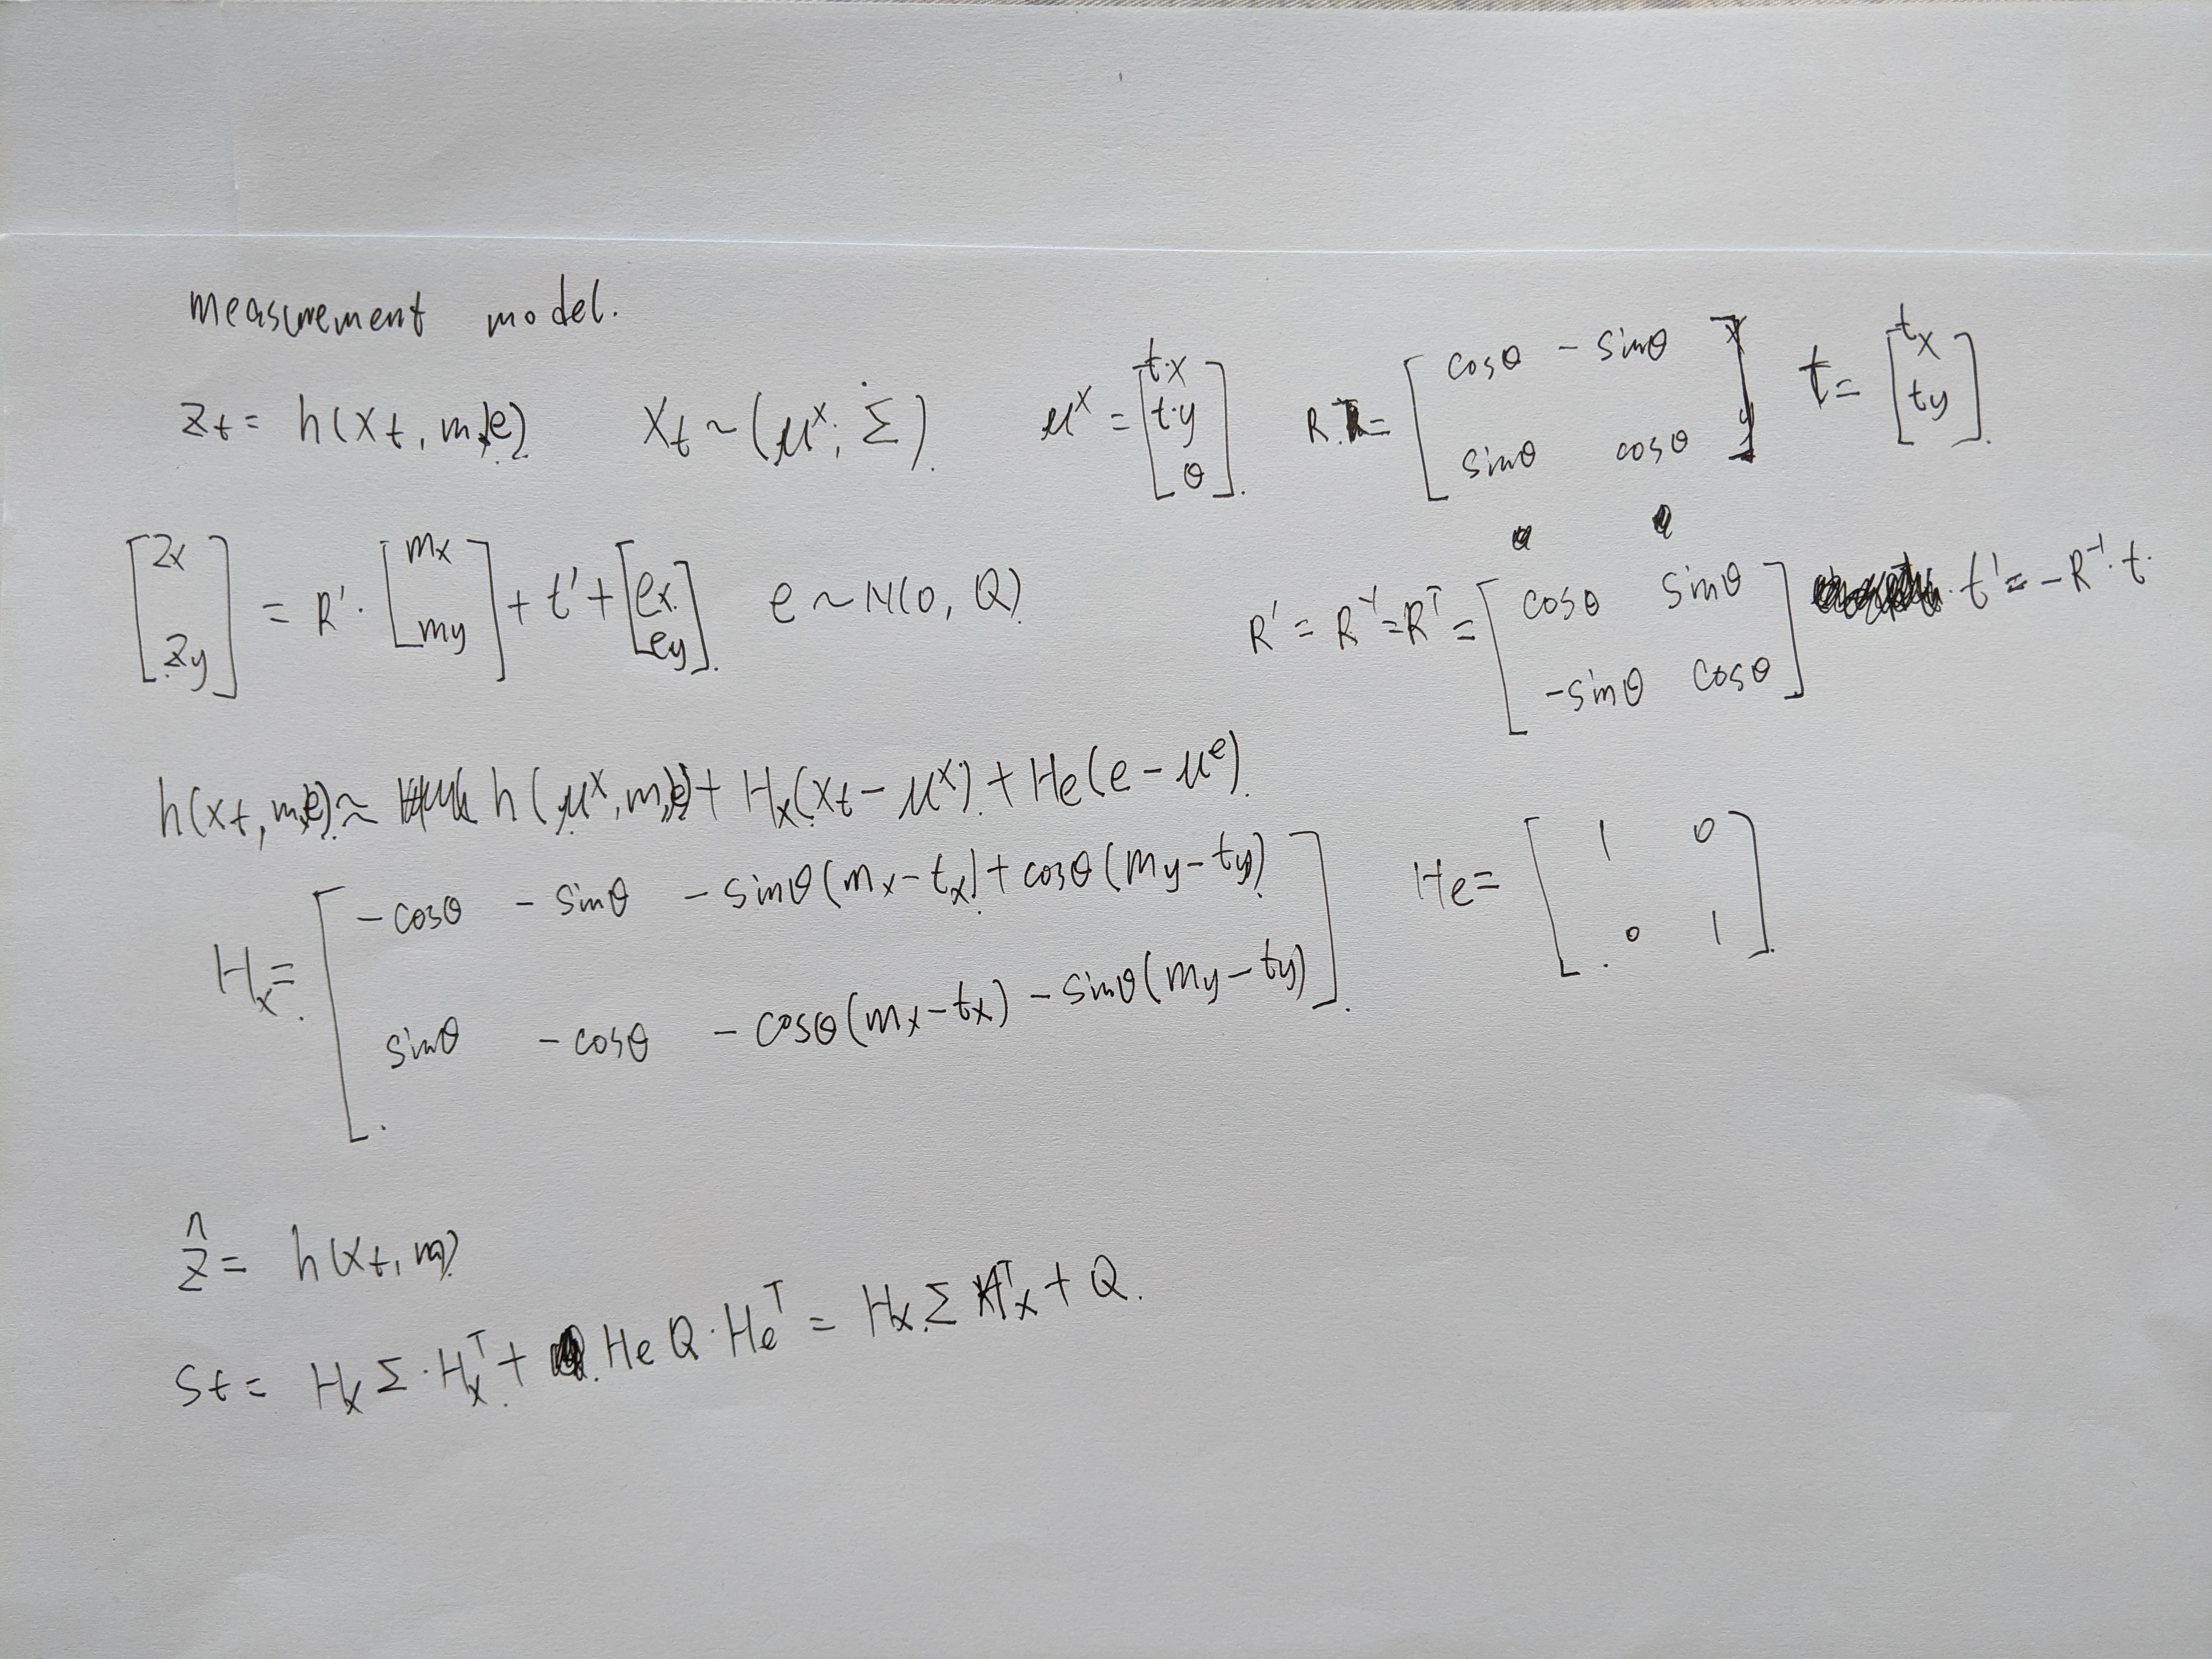 measurement model.
z_t = h(x_t, m, e) x_t ~ (μ^x, Σ). μ^x = [t_x t_y θ]. R = [cosθ -sinθ sinθ cosθ] t = [t_x t_y].
[z_x z_y] = R' · [m_x m_y] + t' + [e_x e_y]. e ~ N(0, Q) R' = R^-1 = R^T = [cosθ sinθ -sinθ cosθ] t' = -R^-1 · t.
h(x_t, m, e) ≈ h(μ^x, m, e) + H_x(x_t - μ^x) + H_e(e - μ^e).
H_x = [-cosθ -sinθ -sinθ(m_x - t_x) + cosθ(m_y - t_y) sinθ -cosθ -cosθ(m_x - t_x) - sinθ(m_y - t_y)]. H_e = [1 0 0 1].
ẑ = h(x_t, m)
S_t = H_x Σ · H_x^T + H_e Q · H_e^T = H_x Σ H_x^T + Q.